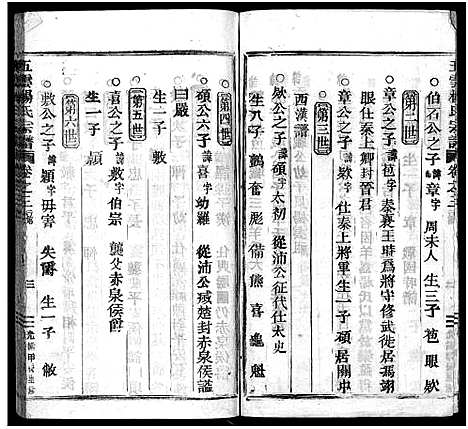 五雲楊氏宗譜
第二世
伯石公之子諱章字 周末人 生三子 苞 眼 欵
章公之子諱苞字 秦襄王時爲將守修武徙居馮翊
眼仕秦上卿封晉君
章公之子諱欵字 仕秦上將軍生一子碩居關中
第三世
西漢譜
欵公之子諱碩字太初 從沛公征代仕太史
生八子 鷫 奮 三 彪 備 熊 喜 龜 魁
第四世
碩公六子諱喜字幼羅 從沛公殘楚封赤泉侯諡
曰嚴
生一子 敷
第五世
喜公之子諱敷字伯宗 襲父赤泉侯爵
生一子 穎
第六世
敷公之子諱穎字毋害 失爵 生一子 敞
五雲楊氏宗譜 卷之三